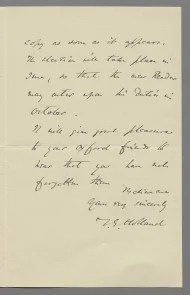 copy as soon as it appears.
The election will take place in
June, so that the new Reader
may enter upon his duties in
October.
It will give great pleasure
to your Oxford friends to
hear that you have not
forgotten them
Yours very sincerely
T. E. Holland